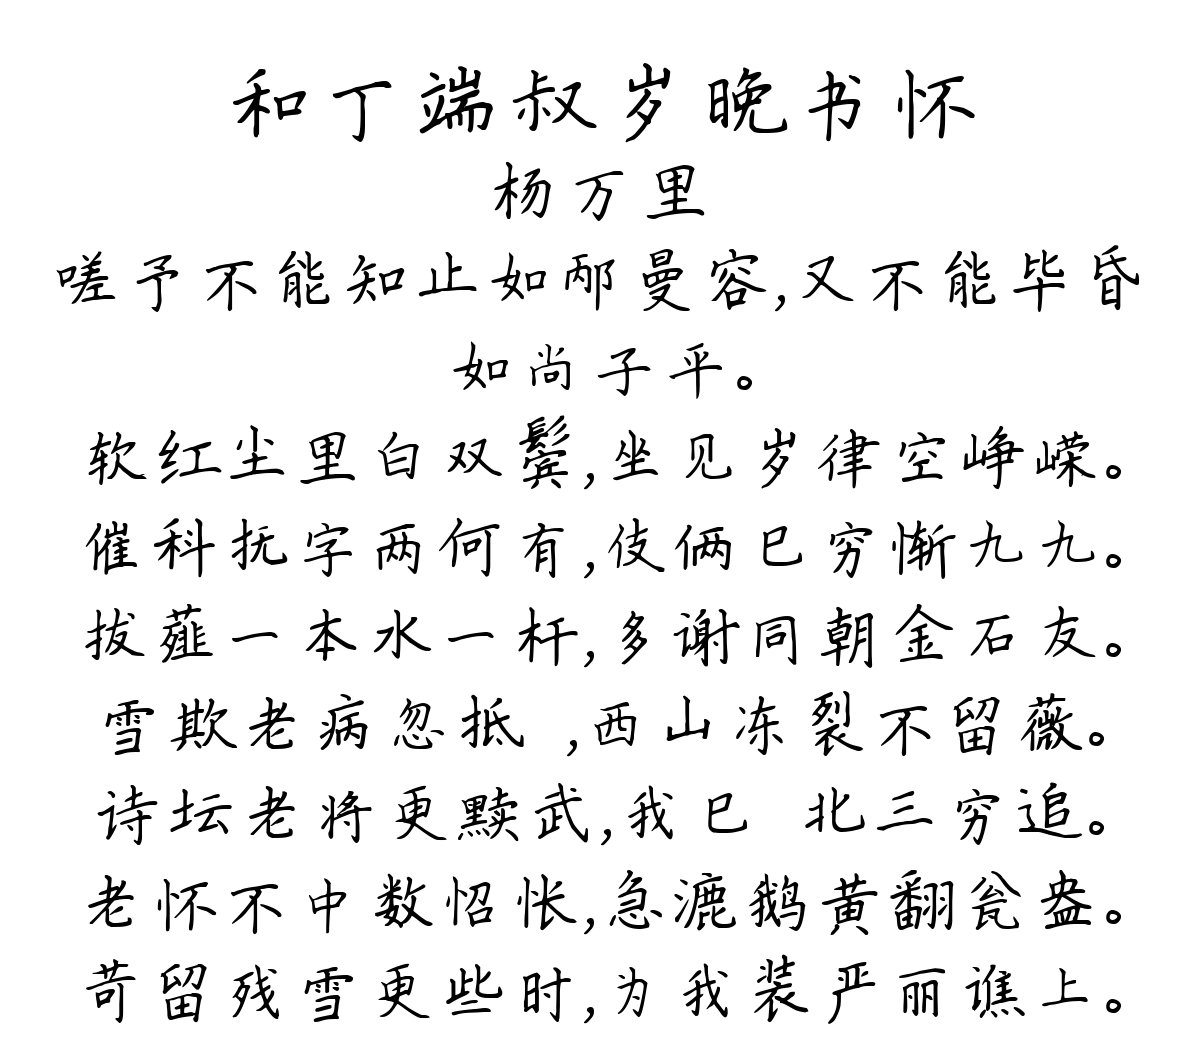 和丁端叔岁晚书怀
杨万里
嗟予不能知止如邴曼容,又不能毕昏
如尚子平。
软红尘里白双鬓,坐见岁律空峥嵘。
催科抚字两何有,伎俩已穷惭九九。
拔薤一本水一杆,多谢同朝金石友。
雪欺老病忽抵 ,西山冻裂不留薇。
诗坛老将更黩武,我已 北三穷追。
老怀不中数怊怅,急漉鹅黄翻瓮盎。
苛留残雪更些时,为我装严丽谯上。